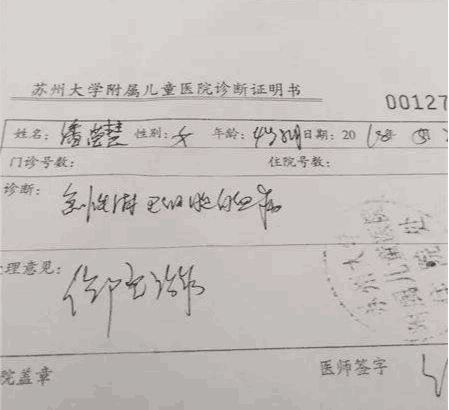 苏州大学附属儿童医院诊断证明书
00127
姓名: 潘莹慧 性别: 女 年龄: 日期: 20
门诊号数: 住院号数:
诊断: 急性淋巴细胞白血病
理意见: 住院治疗
院盖章 医师签字